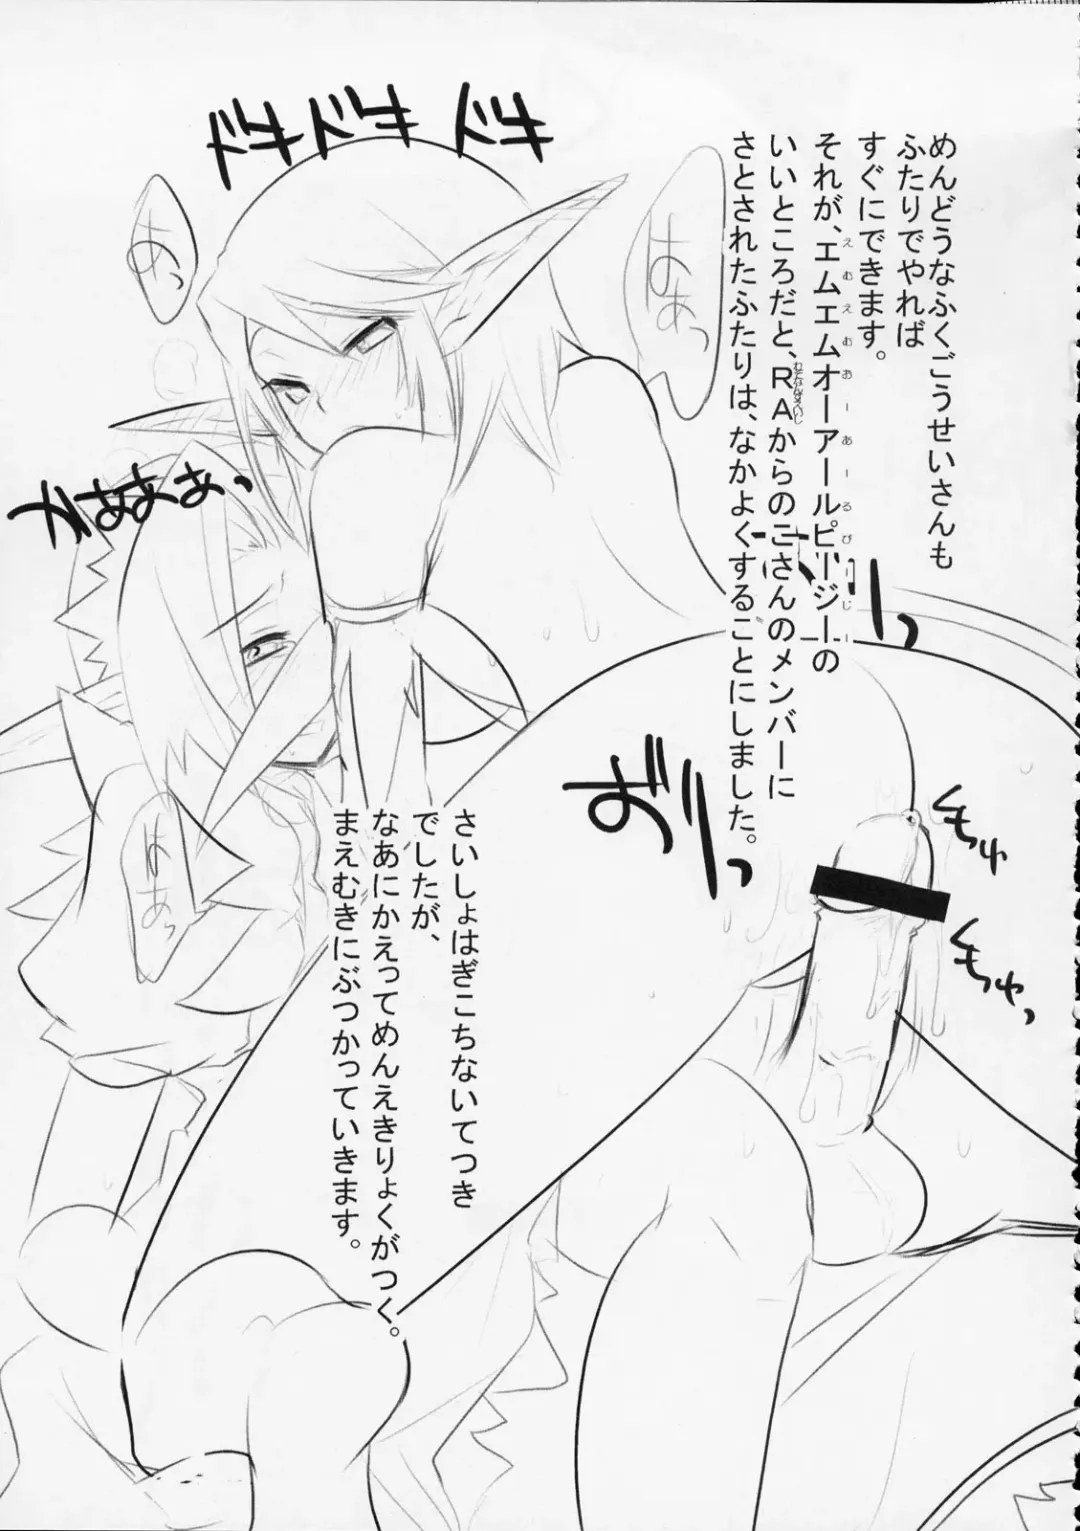 めんどうなふくごうせいさんも
ふたりでやれば
すぐにできます。
それが、エムエムオーアールピージーの
えむえむおーあーるぴーじー
いいところだと、RAからのごさんのメンバーに
さとされたふたりは、なかよくすることにしました。
さいしょはぎこちないてつき
でしたが、
なあにかえってめんえきりょくがつく。
まえむきにぶつかっていきます。
ドキドキ ドキ
あっ
あぁっ
かぁぁぁぁ、
はあっ
くちゅ
くちゅっ